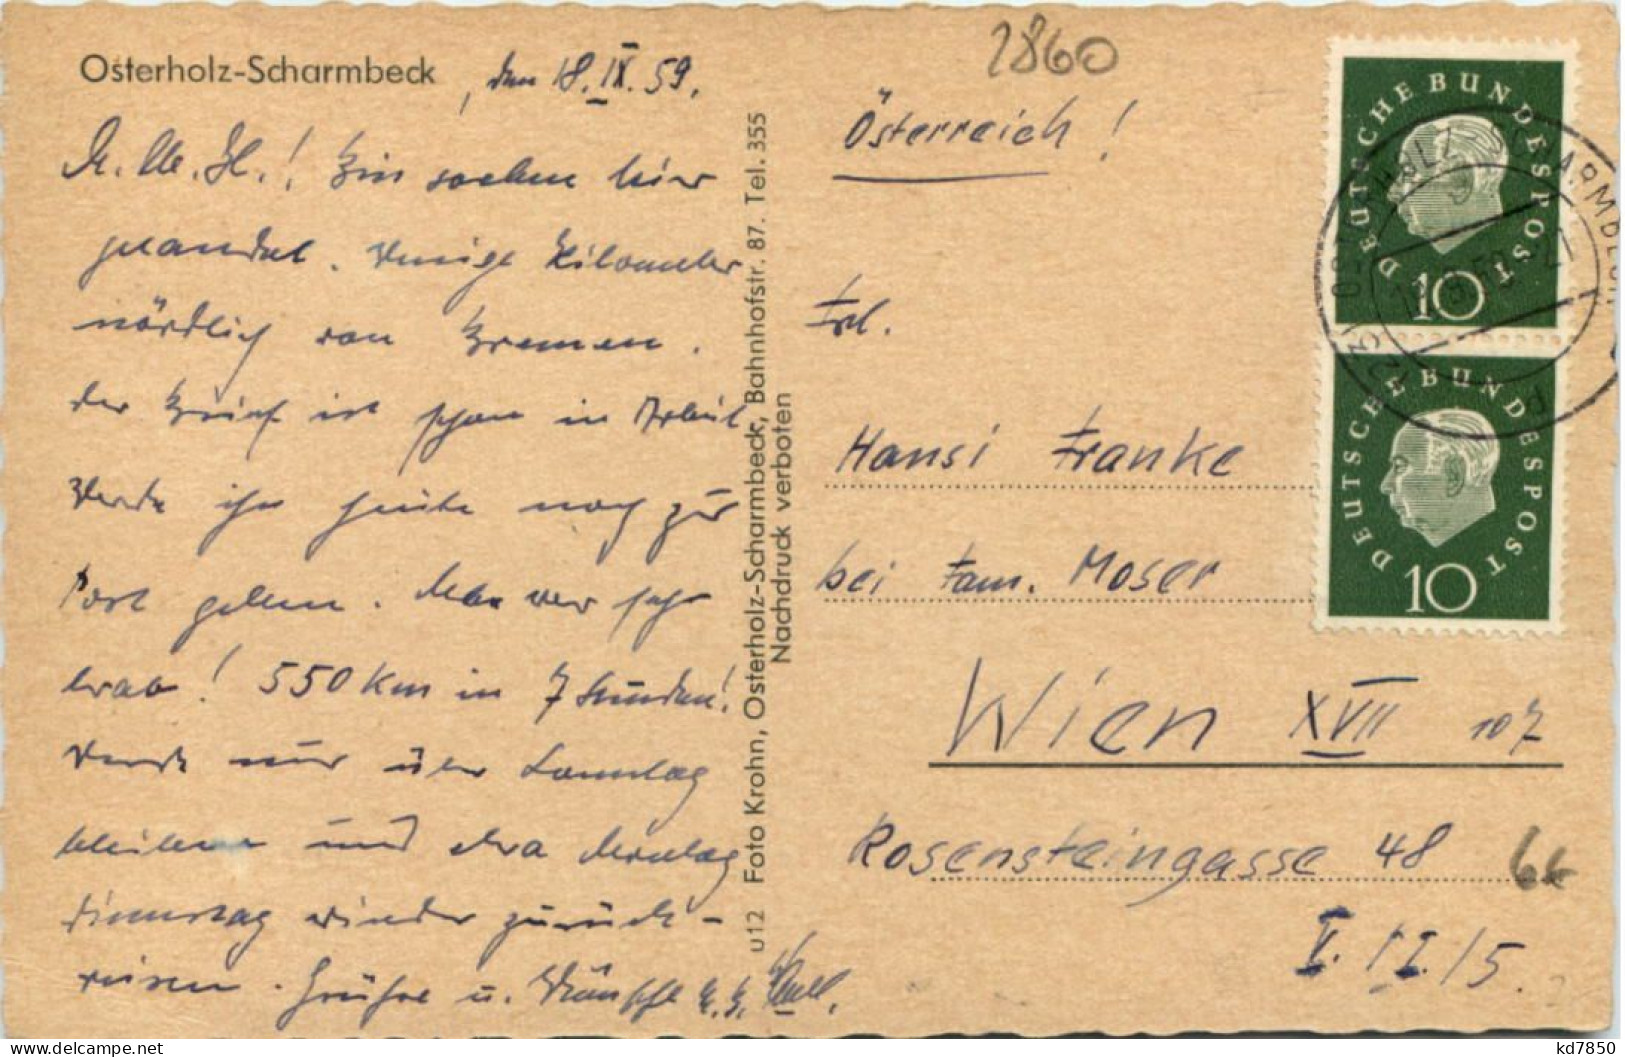 2860
Osterholz-Scharmbeck, den 18. IX. 59.
Bin soeben hier
gelandet. Wenige Kilometer
nördlich von Bremen.
Der Brief ist schon in Arbeit
Werde ihn heute noch zur
Post geben. War sehr
brav! 550 km in 7 Stunden!
Werde nur über Sonntag
bleiben und etwa Montag
Dienstag wieder zurück-
reisen. Grüße u.
u12 Foto Krohn, Osterholz-Scharmbeck, Bahnhofstr. 87. Tel. 355
Nachdruck verboten
Österreich!
Frl.
Hansi Franke
bei Fam. Moser
Wien XVII 107
Rosensteingasse 48
I./5.
DEUTSCHE BUNDESPOST
10
DEUTSCHE BUNDESPOST
10
kd7850